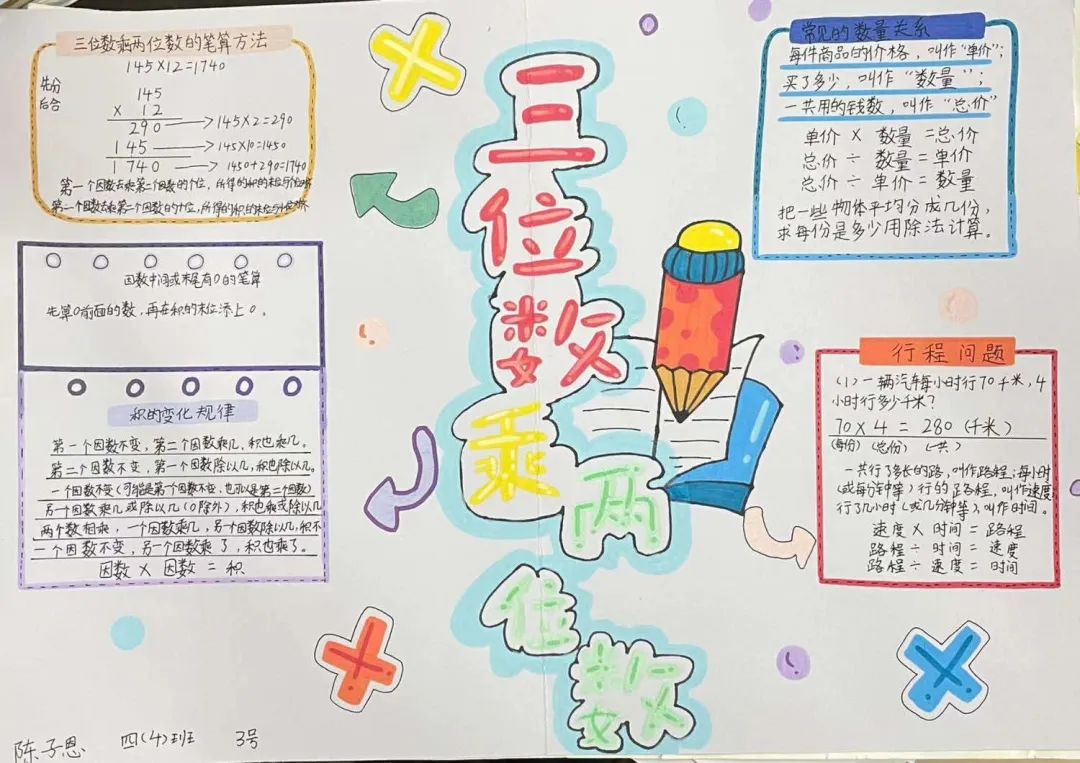 三位数乘两位数的笔算方法
145×12=1740
先分
后合
145
× 12
290 → 145×2=290
145 → 145×10=1450
1740 → 1450+290=1740
第一个因数去乘第二个因数的个位，所得的积的末位与个位对齐
第一个因数去乘第二个因数的十位，所得的积的末位与十位对齐
因数中间或末尾有0的笔算
先算0前面的数，再在积的末位添上0。
积的变化规律
第一个因数不变，第二个因数乘几，积也乘几。
第二个因数不变，第一个因数除以几，积也除以几。
一个因数不变(可能是第一个因数不变，也可以是第二个因数)
另一个因数乘几或除以几(0除外)，积也乘或除以几
两个数相乘，一个因数乘几，另一个因数除以几，积不
一个因数不变，另一个因数乘了，积也乘了。
因数 × 因数 = 积
三位数乘两位数
常见的数量关系
每件商品的价格，叫作“单价”；
买了多少，叫作“数量”；
一共用的钱数，叫作“总价”
单价 × 数量 =总价
总价 ÷ 数量 = 单价
总价 ÷ 单价 = 数量
把一些物体平均分成几份，
求每份是多少用除法计算。
行程问题
(1)一辆汽车每小时行70千米，4
小时行多少千米？
70×4 = 280 (千米)
(每份) (总份) (一共)
一共行了多长的路，叫作路程；每小时
(或每分钟等)行的路程，叫作速度；
行了几小时(或几分钟等)，叫作时间。
速度 × 时间 = 路程
路程 ÷ 时间 = 速度
路程 ÷ 速度 = 时间
陈子恩 四(4)班 3号